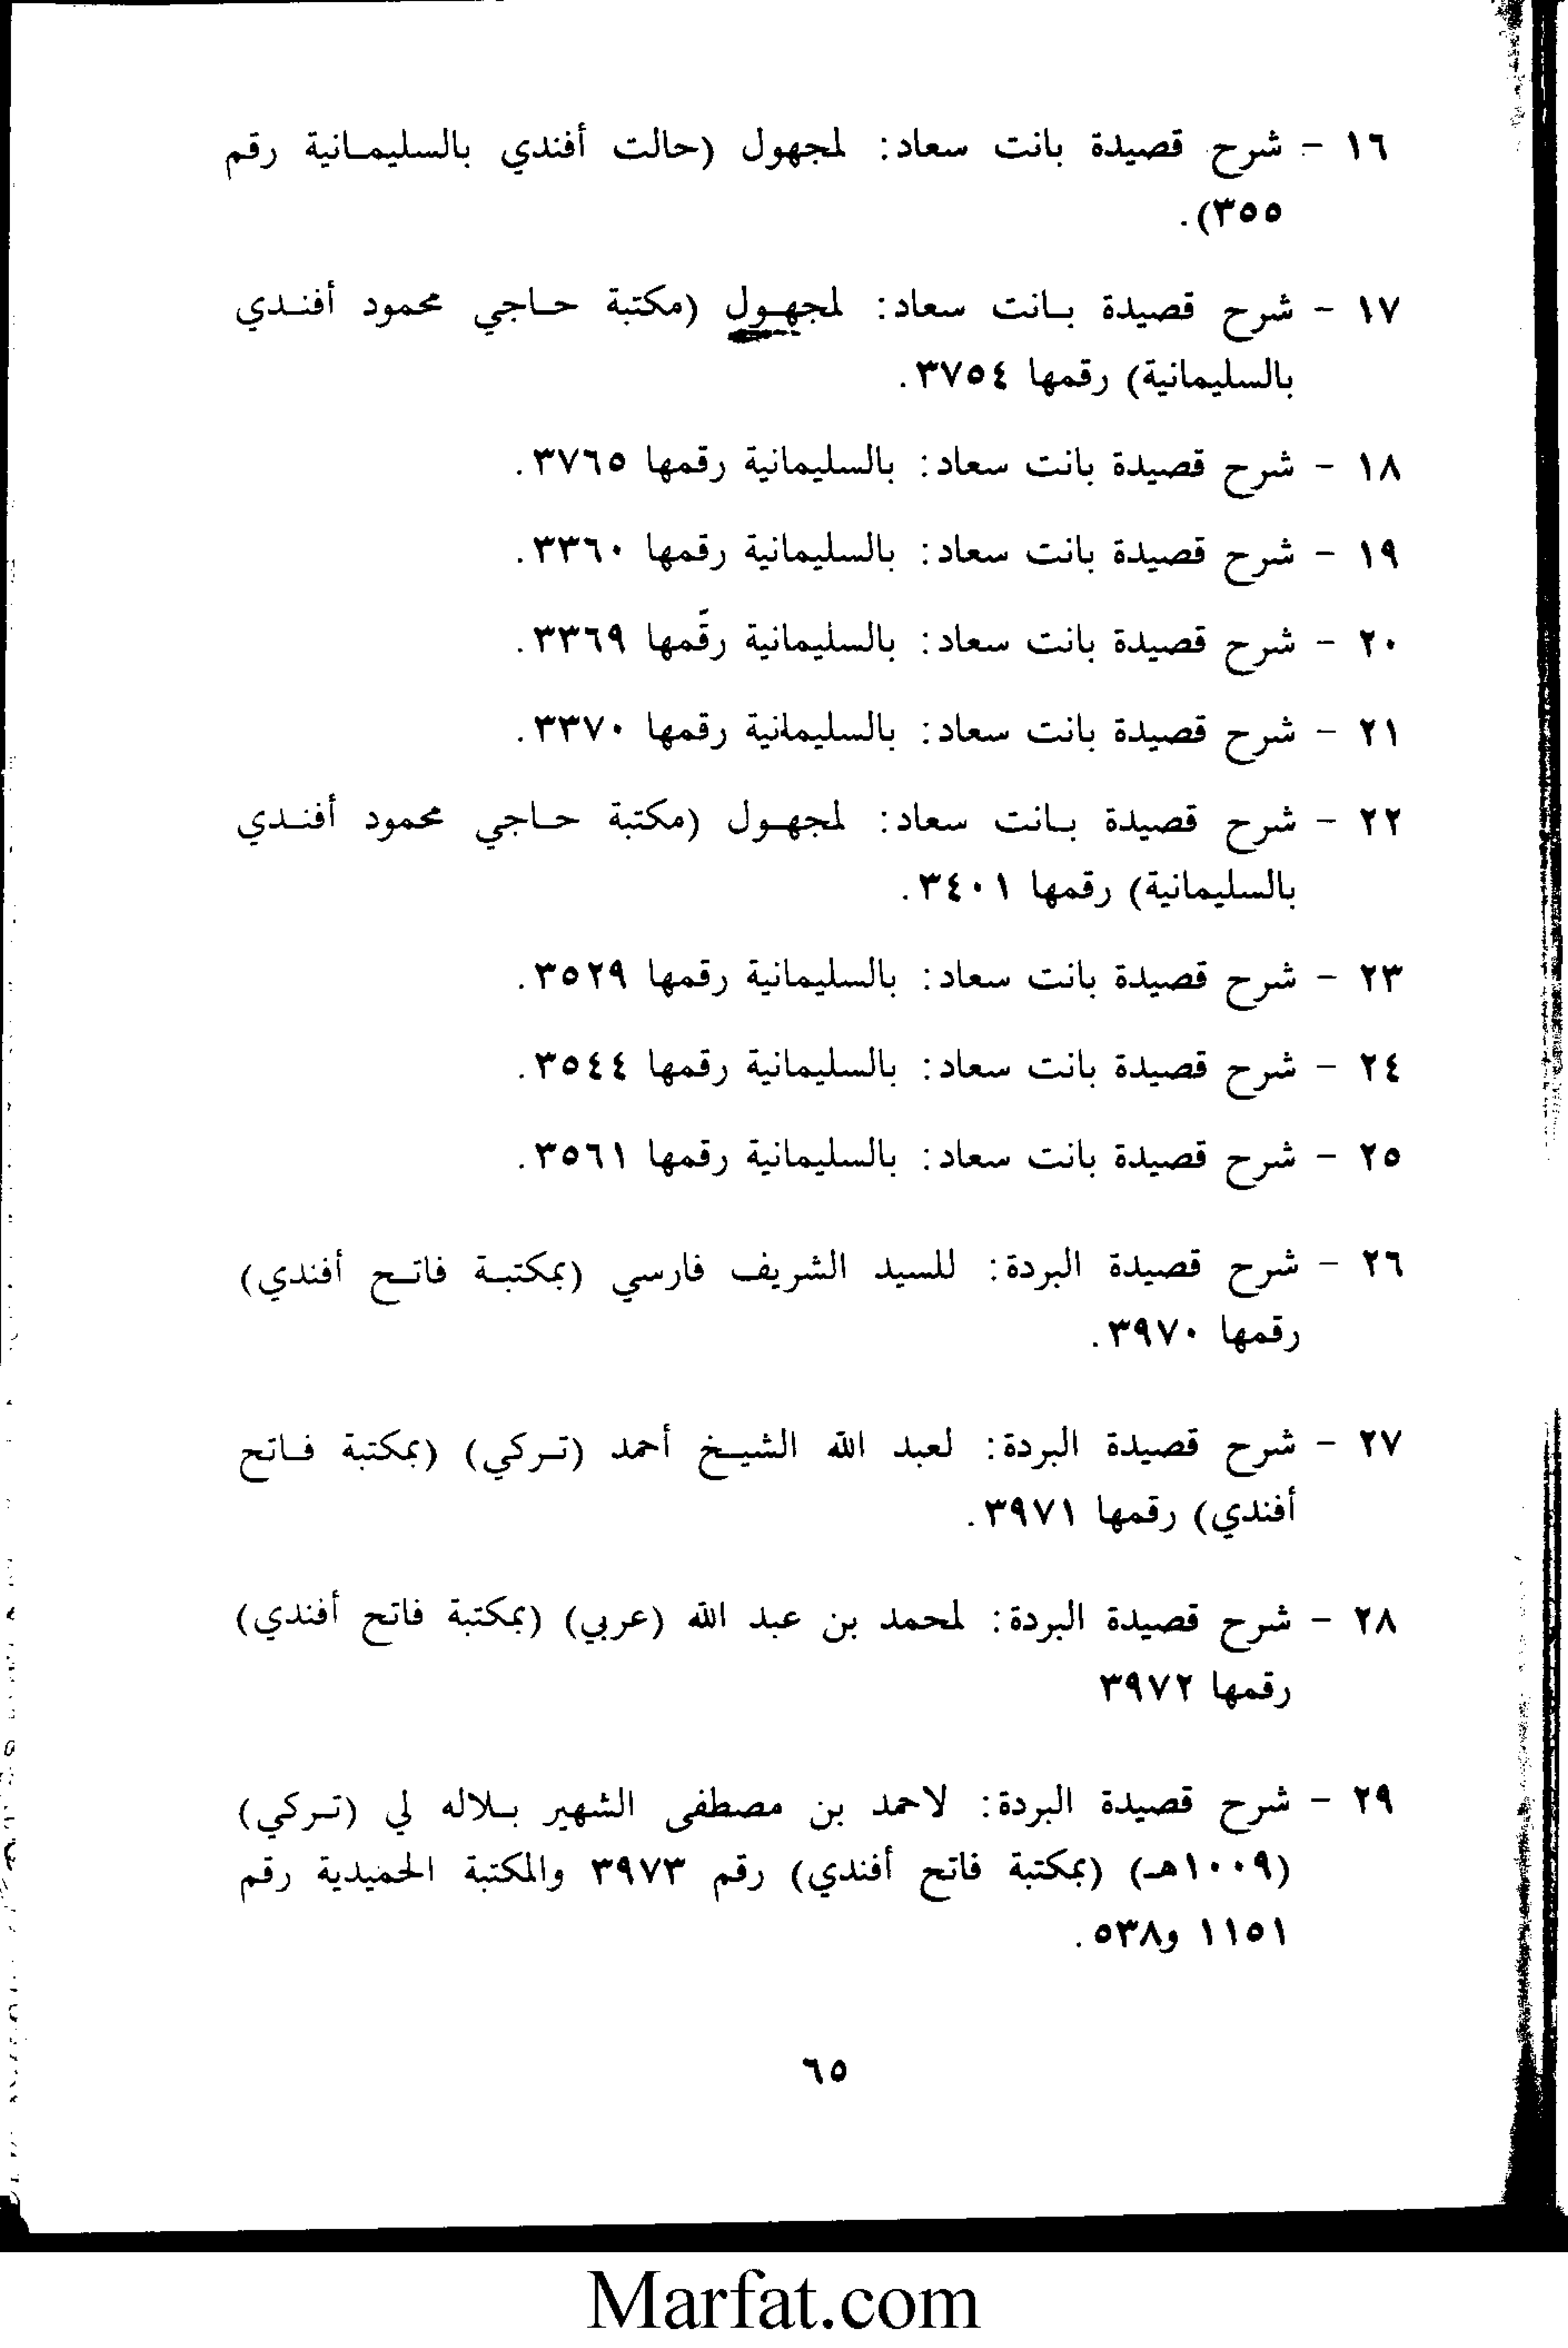 ١٦ - شرح قصيدة بانت سعاد: لمجهول (حالت أفندي بالسليمانية رقم
٣٥٥).
١٧ - شرح قصيدة بانت سعاد: لمجهول (مكتبة حاجي محمود أفندي
بالسليمانية) رقمها ٣٧٥٤.
١٨ - شرح قصيدة بانت سعاد: بالسليمانية رقمها ٣٧٦٥.
١٩ - شرح قصيدة بانت سعاد: بالسليمانية رقمها ٣٣٦٠.
٢٠ - شرح قصيدة بانت سعاد: بالسليمانية رقمها ٣٣٦٩.
٢١ - شرح قصيدة بانت سعاد: بالسليمانية رقمها ٣٣٧٠.
٢٢ - شرح قصيدة بانت سعاد: لمجهول (مكتبة حاجي محمود أفندي
بالسليمانية) رقمها ٣٤٠١.
٢٣ - شرح قصيدة بانت سعاد: بالسليمانية رقمها ٣٥٢٩.
٢٤ - شرح قصيدة بانت سعاد: بالسليمانية رقمها ٣٥٤٤.
٢٥ - شرح قصيدة بانت سعاد: بالسليمانية رقمها ٣٥٦١.
٢٦ - شرح قصيدة البردة: للسيد الشريف فارسي (بمكتبة فاتح أفندي)
رقمها ٣٩٧٠.
٢٧ - شرح قصيدة البردة: لعبد الله الشيخ أحمد (تركي) (بمكتبة فاتح
أفندي) رقمها ٣٩٧١.
٢٨ - شرح قصيدة البردة: لمحمد بن عبد الله (عربي) (بمكتبة فاتح أفندي)
رقمها ٣٩٧٢
٢٩ - شرح قصيدة البردة: لاحمد بن مصطفى الشهير بلاله لي (تركي)
(١٠٠٩هـ) (بمكتبة فاتح أفندي) رقم ٣٩٧٣ والمكتبة الحميدية رقم
١١٥١ و٥٣٨.
٦٥
Marfat.com